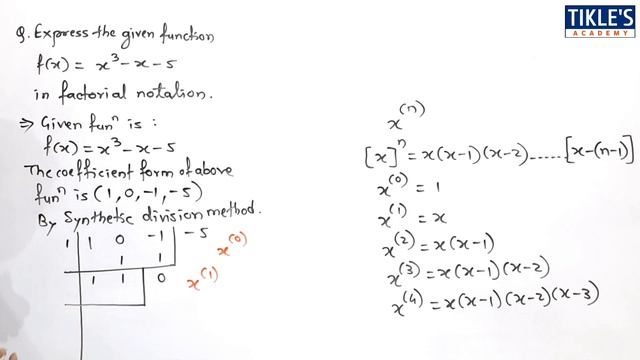 TIKLE'S
ACADEMY
Q. Express the given function
f(x) = x³ - x - 5
in factorial notation.
⇒ Given funⁿ is :
f(x) = x³ - x - 5
The coefficient form of above
funⁿ is (1, 0, -1, -5)
By Synthetsc division method.
1 | 1 0 -1 | -5 x^(0)
1 1
1 1 | 0 x^(1)
x^(n)
[x]^n = x(x-1)(x-2)......[x-(n-1)]
x^(0) = 1
x^(1) = x
x^(2) = x(x-1)
x^(3) = x(x-1)(x-2)
x^(4) = x(x-1)(x-2)(x-3)